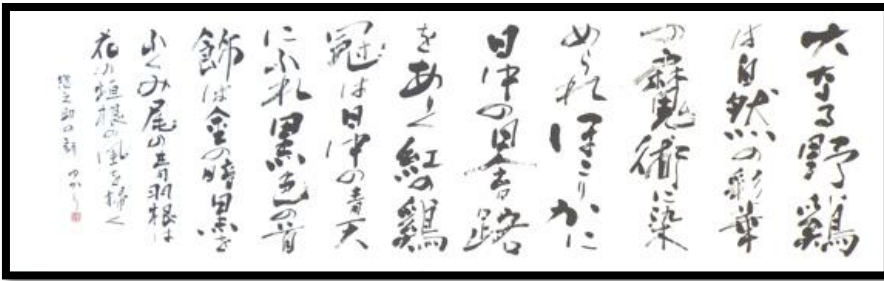 大なる野鶏
は自然の彩筆
の魔術に染
められほこりかに
日中の暗路
をあるく紅の鶏
冠は日中の青天
にふれ黒色の首
飾は金の暗黒を
ふくみ尾の青羽根は
花の垣根の風を掃く
惣之助の詩